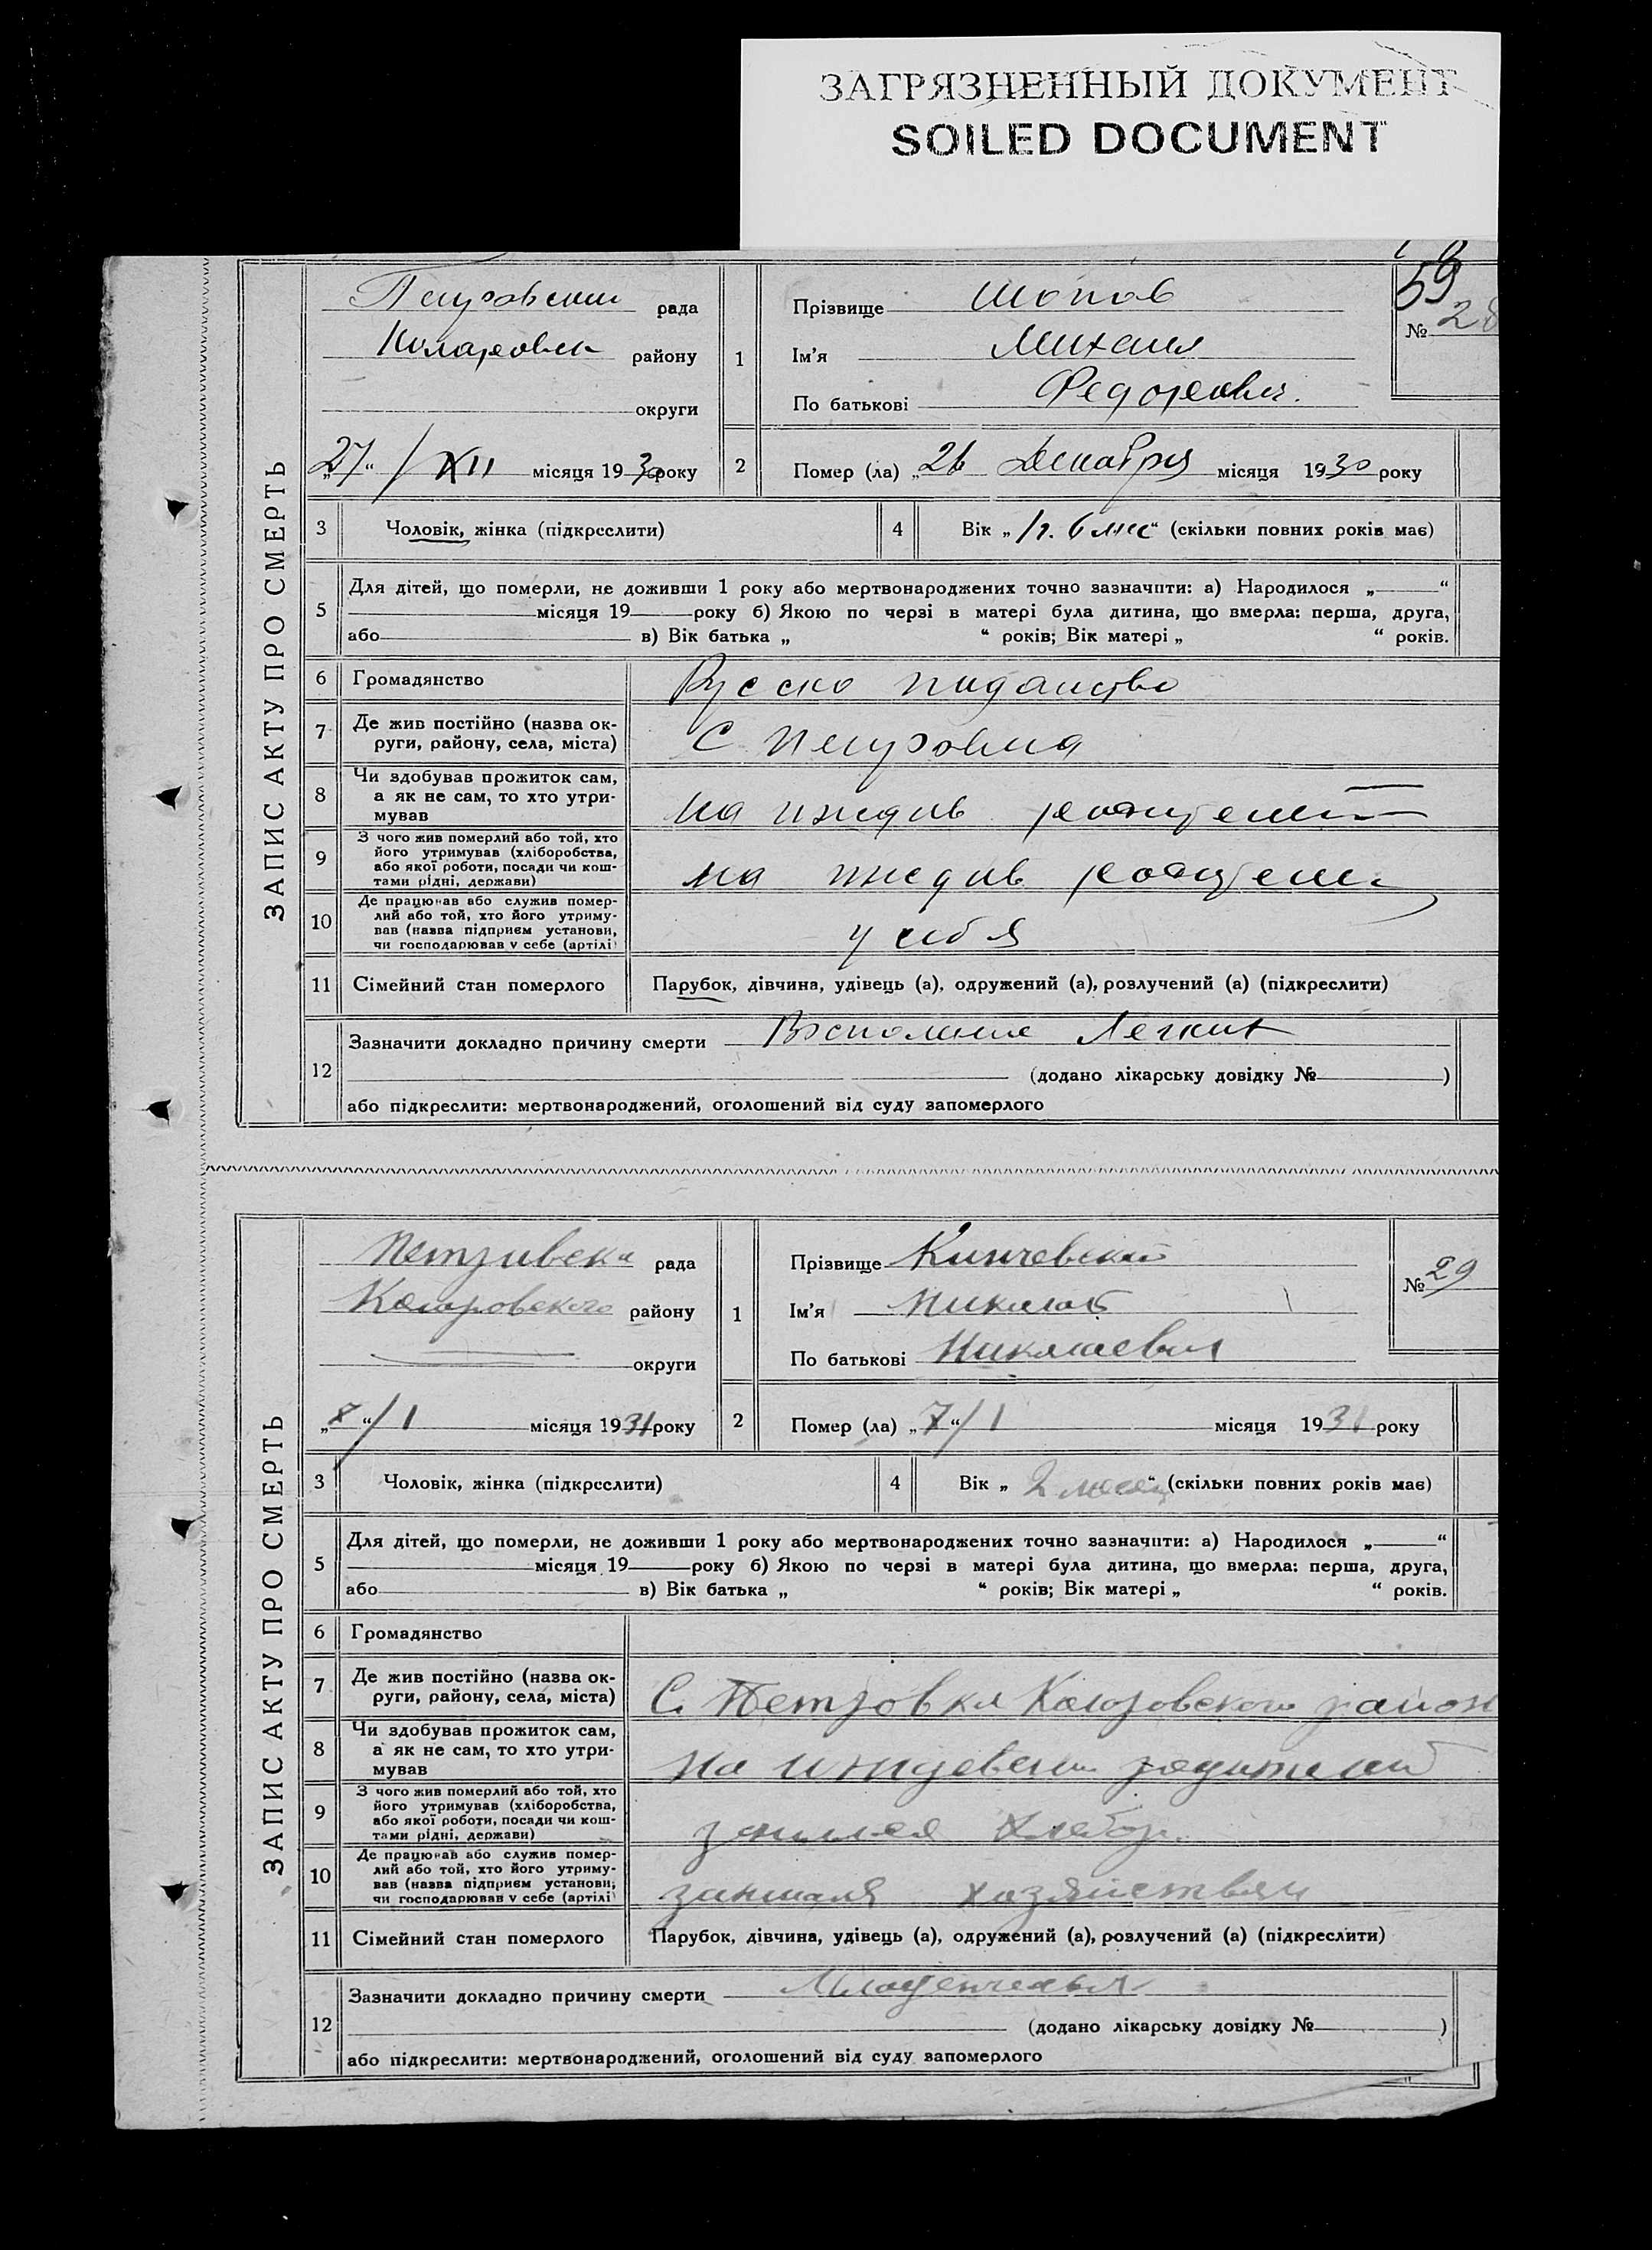 ЗАГРЯЗНЕННЫЙ ДОКУМЕНТ
SOILED DOCUMENT
59
№ 28
ЗАПИС АКТУ ПРО СМЕРТЬ
рада
району
округи
„27“ / XII місяця 1930 року
1
Прізвище Шопов
Ім’я Михаил
По батькові Федорович.
2
Помер (ла) „26 Декабря місяця 1930 року
3 Чоловік, жінка (підкреслити)
4 Вік „1 г. 6 мес“ (скільки повних років має)
5 Для дітей, що померли, не доживши 1 року або мертвонароджених точно зазначити: а) Народилося „ “
місяця 19 року б) Якою по черзі в матері була дитина, що вмерла: перша, друга,
або в) Вік батька „ “ років; Вік матері „ “ років.
6 Громадянство Русско подданство
7 Де жив постійно (назва ок-
руги, району, села, міста) С Петровка
8 Чи здобував прожиток сам,
а як не сам, то хто утри-
мував на иждив родителей
9 З чого жив померлий або той, хто
його утримував (хліборобства,
або якої роботи, посади чи кош-
тами рідні, держави) на иждив родителе
10 Де працював або служив помер-
лий або той, хто його утриму-
вав (назва підприєм установи,
чи господарював у себе (артілі) у себя
11 Сімейний стан померлого Парубок, дівчина, удівець (а), одружений (а), розлучений (а) (підкреслити)
12 Зазначити докладно причину смерти Воспаление Легких
(додано лікарську довідку № )
або підкреслити: мертвонароджений, оголошений від суду запомерлого
ЗАПИС АКТУ ПРО СМЕРТЬ
рада
району
округи
„8“/ 1 місяця 1931 року
1
Прізвище
Ім’я Николай
По батькові Николаевич
№ 29
2
Помер (ла) „7“/ 1 місяця 1931 року
3 Чоловік, жінка (підкреслити)
4 Вік „2 месяц“ (скільки повних років має)
5 Для дітей, що померли, не доживши 1 року або мертвонароджених точно зазначити: а) Народилося „ “
місяця 19 року б) Якою по черзі в матері була дитина, що вмерла: перша, друга,
або в) Вік батька „ “ років; Вік матері „ “ років.
6 Громадянство
7 Де жив постійно (назва ок-
руги, району, села, міста) С. Петровка район
8 Чи здобував прожиток сам,
а як не сам, то хто утри-
мував на родителей
9 З чого жив померлий або той, хто
його утримував (хліборобства,
або якої роботи, посади чи кош-
тами рідні, держави)
10 Де працював або служив помер-
лий або той, хто його утриму-
вав (назва підприєм установи,
чи господарював у себе (артілі)
11 Сімейний стан померлого Парубок, дівчина, удівець (а), одружений (а), розлучений (а) (підкреслити)
12 Зазначити докладно причину смерти
(додано лікарську довідку № )
або підкреслити: мертвонароджений, оголошений від суду запомерлого